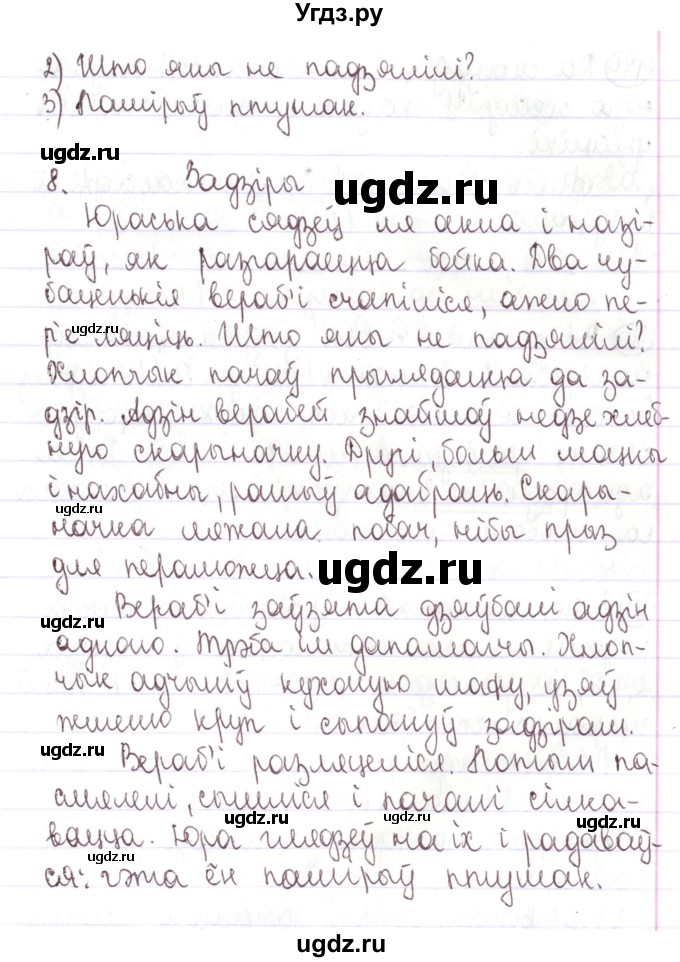 Угдз.ру
2) Што яны не падзялілі?
3) Памірыў птушак.
8. Задзіры
Юраська сядзеў ля акна і назі-
раў, як разгараецца бойка. Два чу-
баценькія вераб'і счапіліся, ажно пе-
р'е ляціць. Што яны не падзялілі?
Хлопчык пачаў прыглядацца да за-
дзір. Адзін верабей знайшоў недзе хлеб-
ную скарыначку. Другі, больш моцны
і нахабны, рашыў адабраць. Скары-
начка ляжала побач, нібы прыз
для пераможца.
Вераб'і заўзята дзяўбалі адзін
аднаго. Трэба ім дапамагчы. Хлоп-
чык адчыніў кухонную шафу, узяў
жменю круп і сыпануў задзірам.
Вераб'і разляцеліся. Потым па-
смялелі, сышліся і пачалі сілка-
вацца. Юра глядзеў на іх і радаваў-
ся: гэта ён памірыў птушак.
ugdz.ru
ugdz.ru
ugdz.ru
ugdz.ru
ugdz.ru
ugdz.ru
ugdz.ru
ugdz.ru
ugdz.ru
ugdz.ru
ugdz.ru
ugdz.ru
ugdz.ru